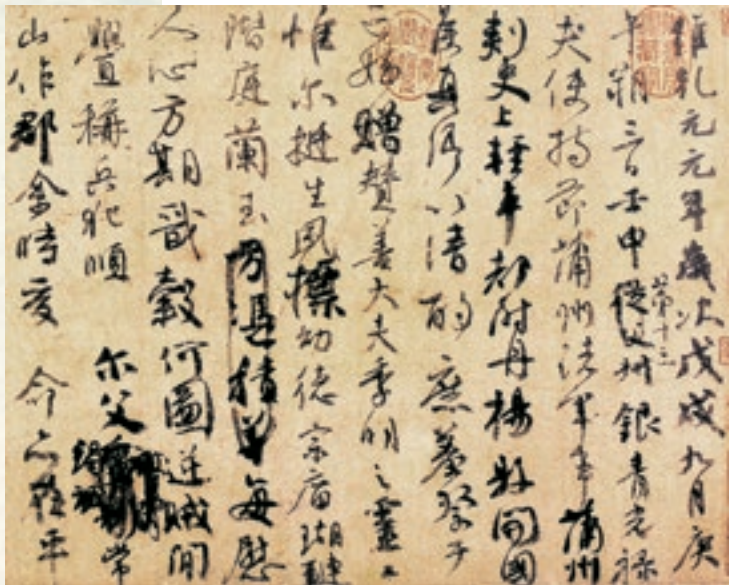 維乾元元年歲次戊戌九月庚
午朔三日壬申第十三從父叔銀青光祿
夫使持節蒲州諸軍事蒲州
刺史上輕車都尉丹楊縣開國
侯真卿以清酌庶羞祭于
亡姪贈贊善大夫季明之靈曰
惟尔挺生夙標幼德宗廟瑚璉
階庭蘭玉方憑積善每慰
人心方期戩穀何圖逆賊閒
釁稱兵犯順 尔父常
山作郡余時受 命亦在平